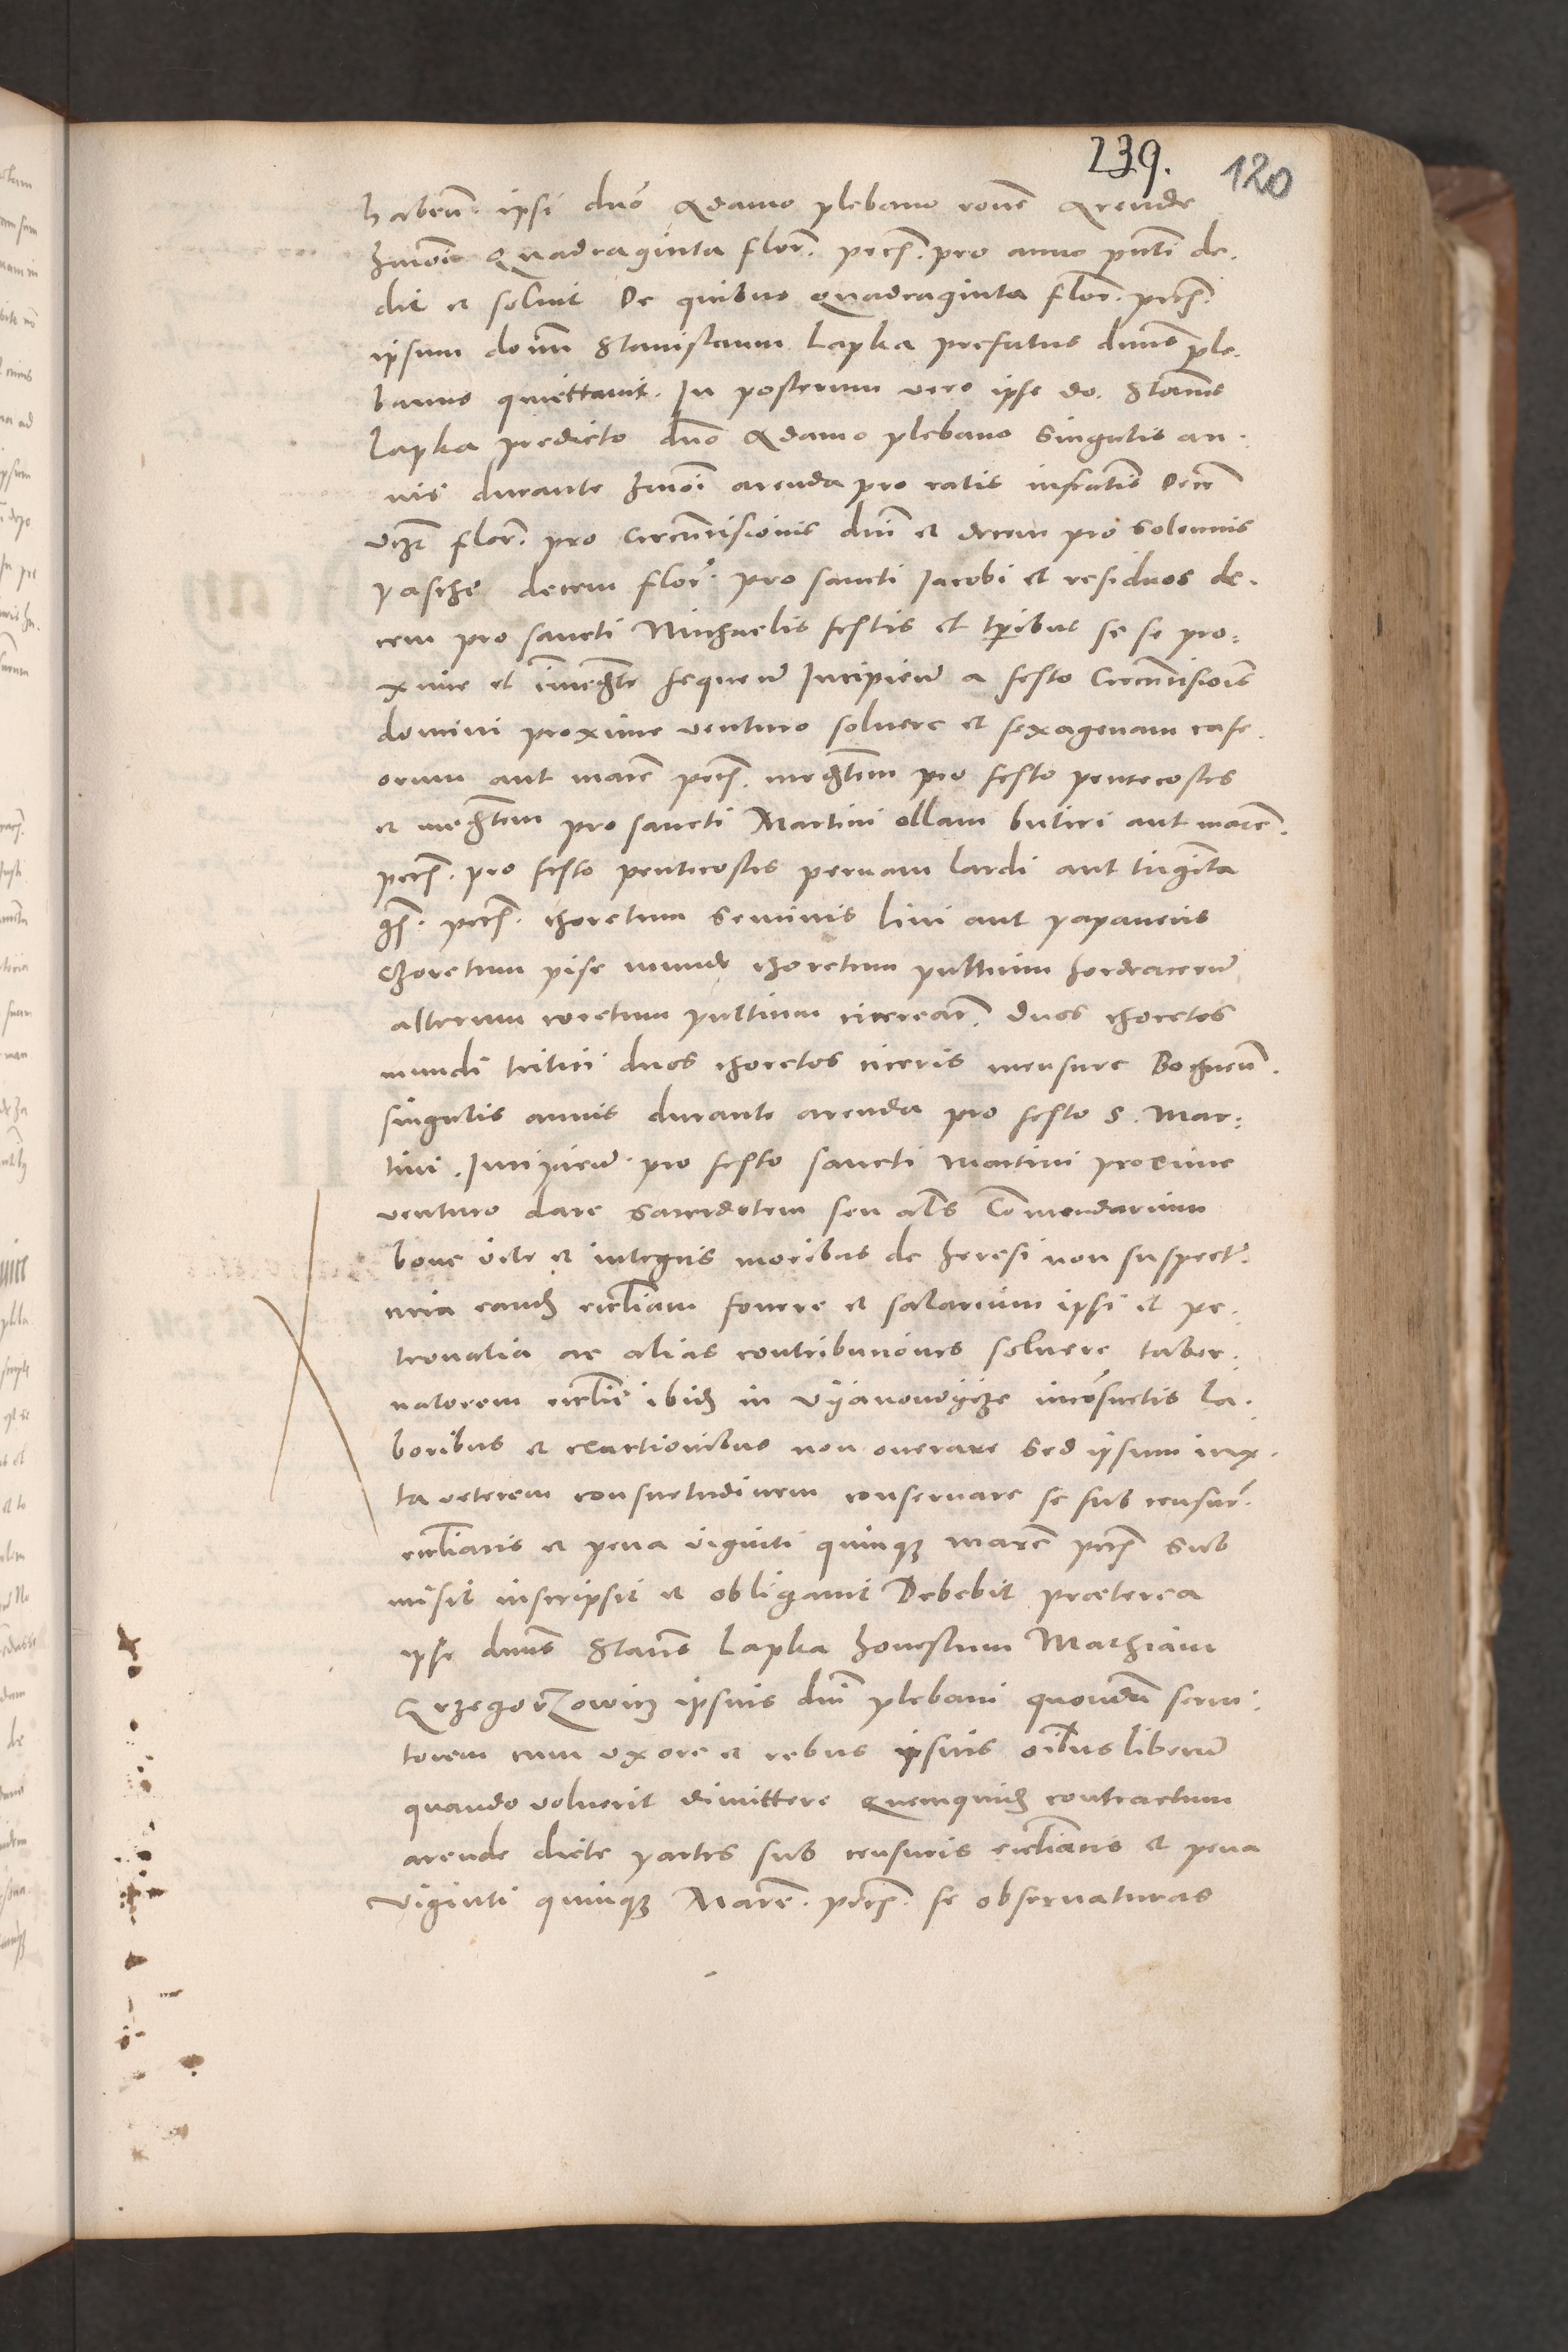 239. 120
habeñ. ipsi dno Adamo plebano roñe Arende
hmoi Quadraginta flor. pecs. pro anno pnti de.
dit et soluit De quibus quadraginta flor. pecs.
ipsum domi Stanislaum Lapka prefatus dnus ple.
banus quiettauit. In posterum vero ipse do. Stanis
Lapka predicto dno Adamo plebano singulis an.
nis durante hmoi arenda pro ratis infrascriptis Decem
videlicet flor. pro Circumcisionis dni et decem pro solennis
pasche decem flor. pro sancti Jacobi et residuos de.
cem pro sancti Michaelis festis et tpribus se se pro=
xime et immediate sequen Incipien a festo Circumcisionis
domini proxime venturo soluere et sexagenam case.
orum aut marc pecs. medietatem pro festo pentecostes
et medietatem pro sancti Martini ollam butiri aut marc.
pecs. pro festo pentecostes pernam lardi aut triginta
gs. pecs. choretum seminis lini aut papaueris
choretum pise munde choretum pultium hordeaceum
alterum coretum pultium cicerear. duos choretos
mundi tritici duos choretos ciceris mensure Bochnen.
singulis annis durante arenda pro festo s. Mar=
tini. Incipien. pro festo sancti Martini proxime
venturo dare sacerdotem seu als Commendarium
bone vite et integris moribus de heresi non suspect
circa eandem eccliam fouere et salarium ipsi et pe.
tronalia ac alias contributiones soluere taber.
natorem ecclie ibidem in Vyanowycze inconsuetis la.
boribus et exactionibus non onerare sed ipsum iux.
ta veterem consuetudinem conseruare se sub censur.
ecclianis et pena viginti quinque marc pecs sub
misit inscripsit et obligauit Debebit praeterea
ipse dnus Stanis Lapka honestum Mathiam
Grzegorzowicz ipsius dni plebani quondam serui.
torem cum uxore et rebus ipsius oibus liberum
quando voluerit dimittere Quemquidem contractum
arende dicte partes sub censuris ecclianis et pena
viginti quinque Marc. pecs. se obseruaturas